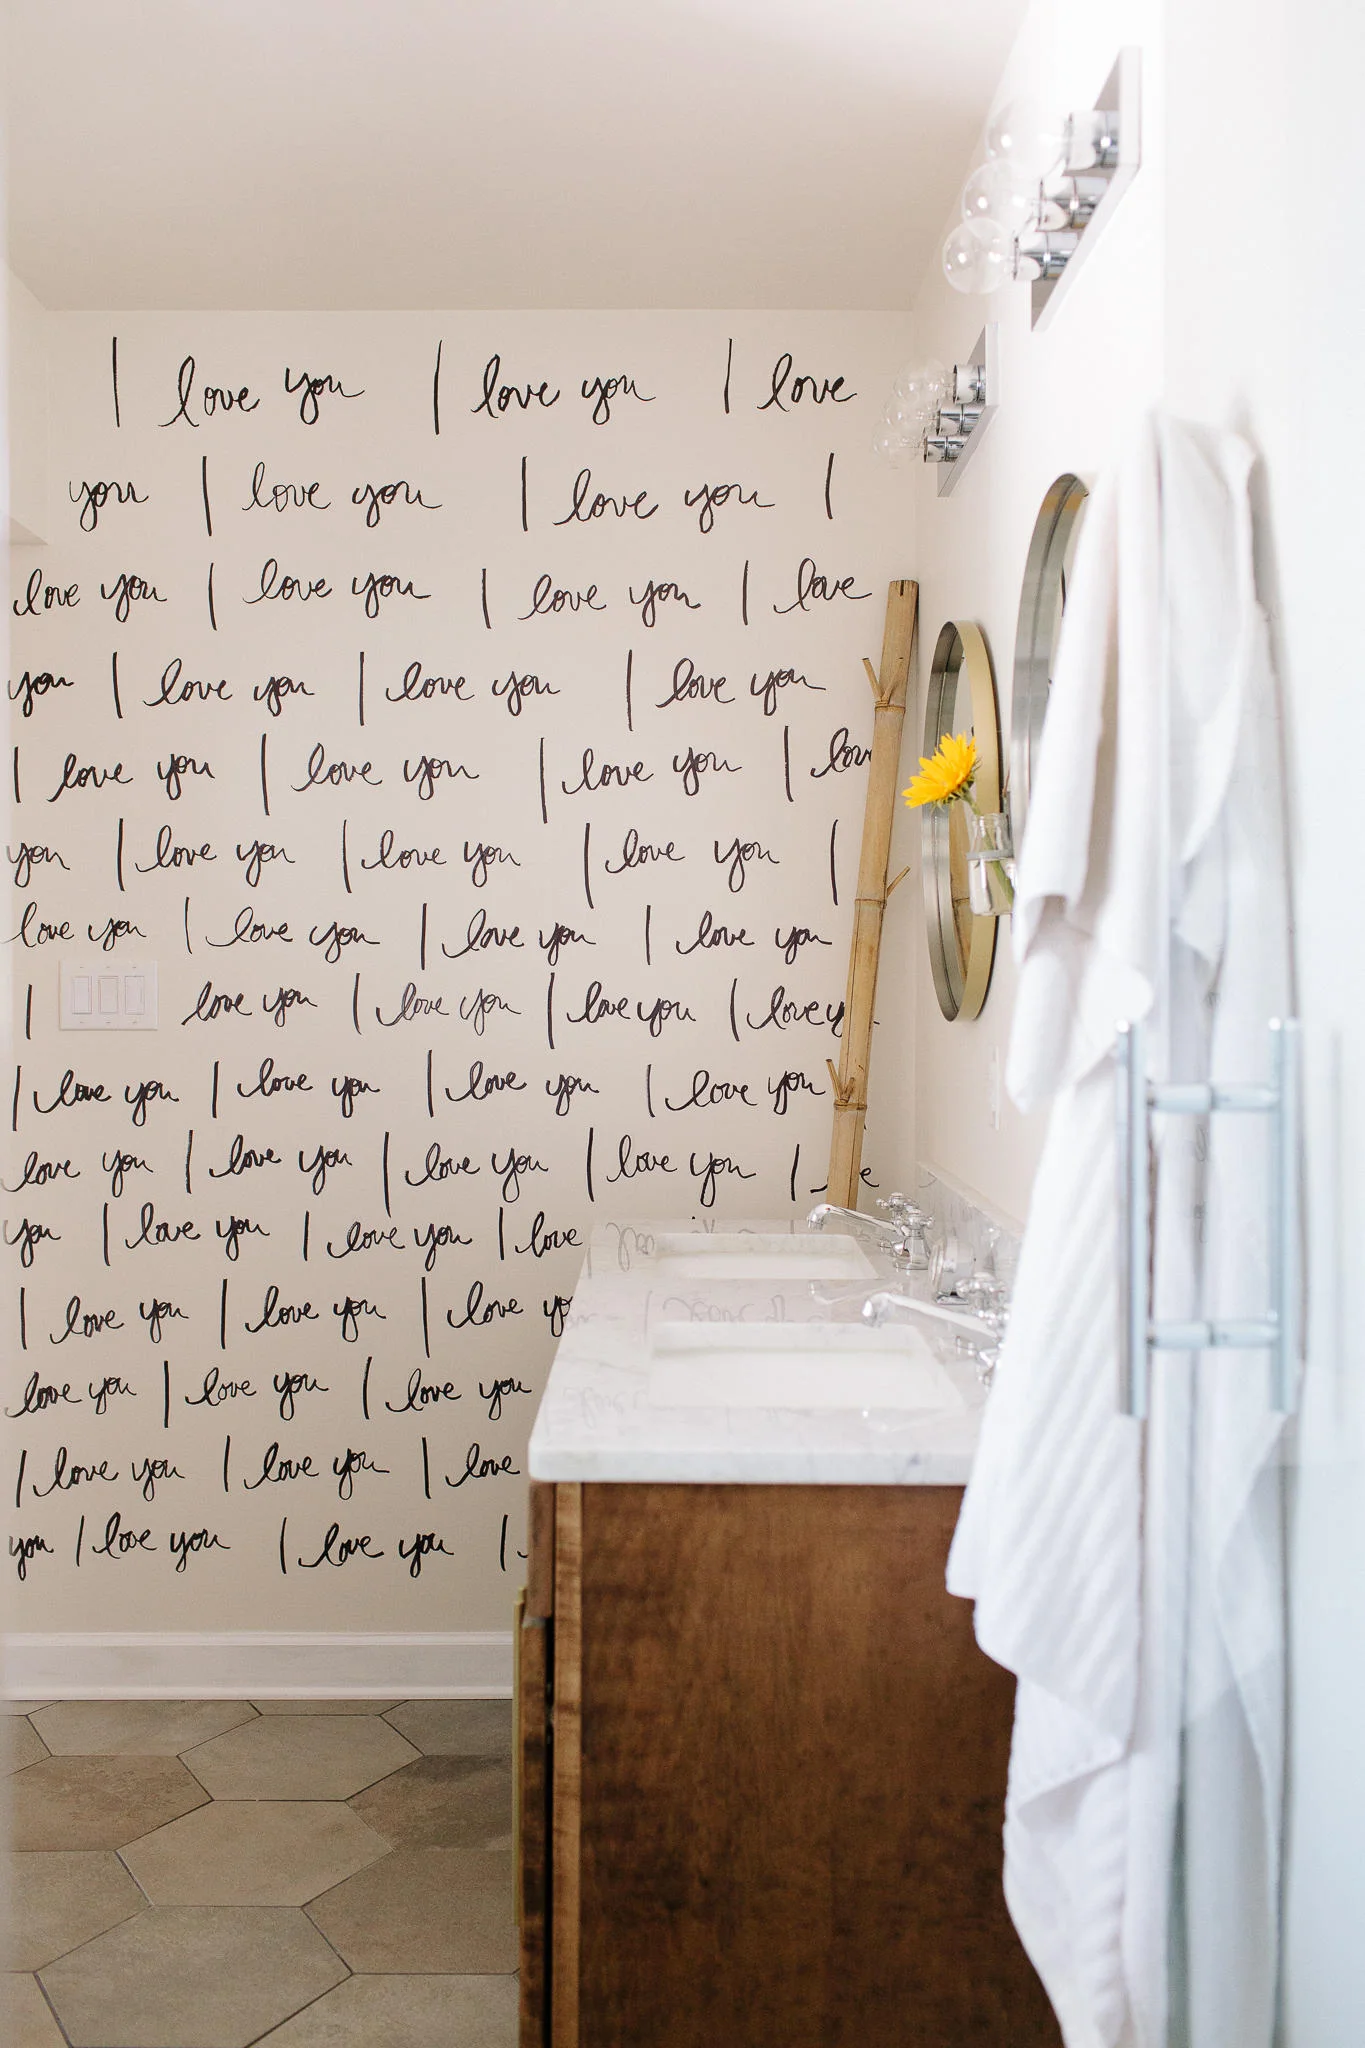 I love you I love you I love
you I love you I love you I
love you I love you I love you I love
you I love you I love you I love you
I love you I love you I love you I love
you I love you I love you I love you I
love you I love you I love you I love you
I love you I love you I love you I love you
I love you I love you I love you I love you
love you I love you I love you I love you I
you I love you I love you I love
I love you I love you I love you
love you I love you I love you
I love you I love you I love
you I love you I love you I